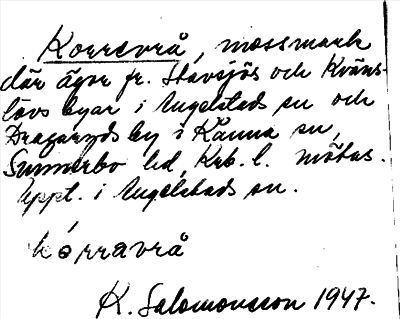 Korrevrå, mossmark
där ägor fr. Stavsjös och Kväns-
lövs byar i Angelstads sn och
Dragaryds by i Kånna sn,
Sunnerbo hd, Krb. l. mötas.
Uppt. i Angelstads sn.
kórravrå
K. Salomonsson 1947.